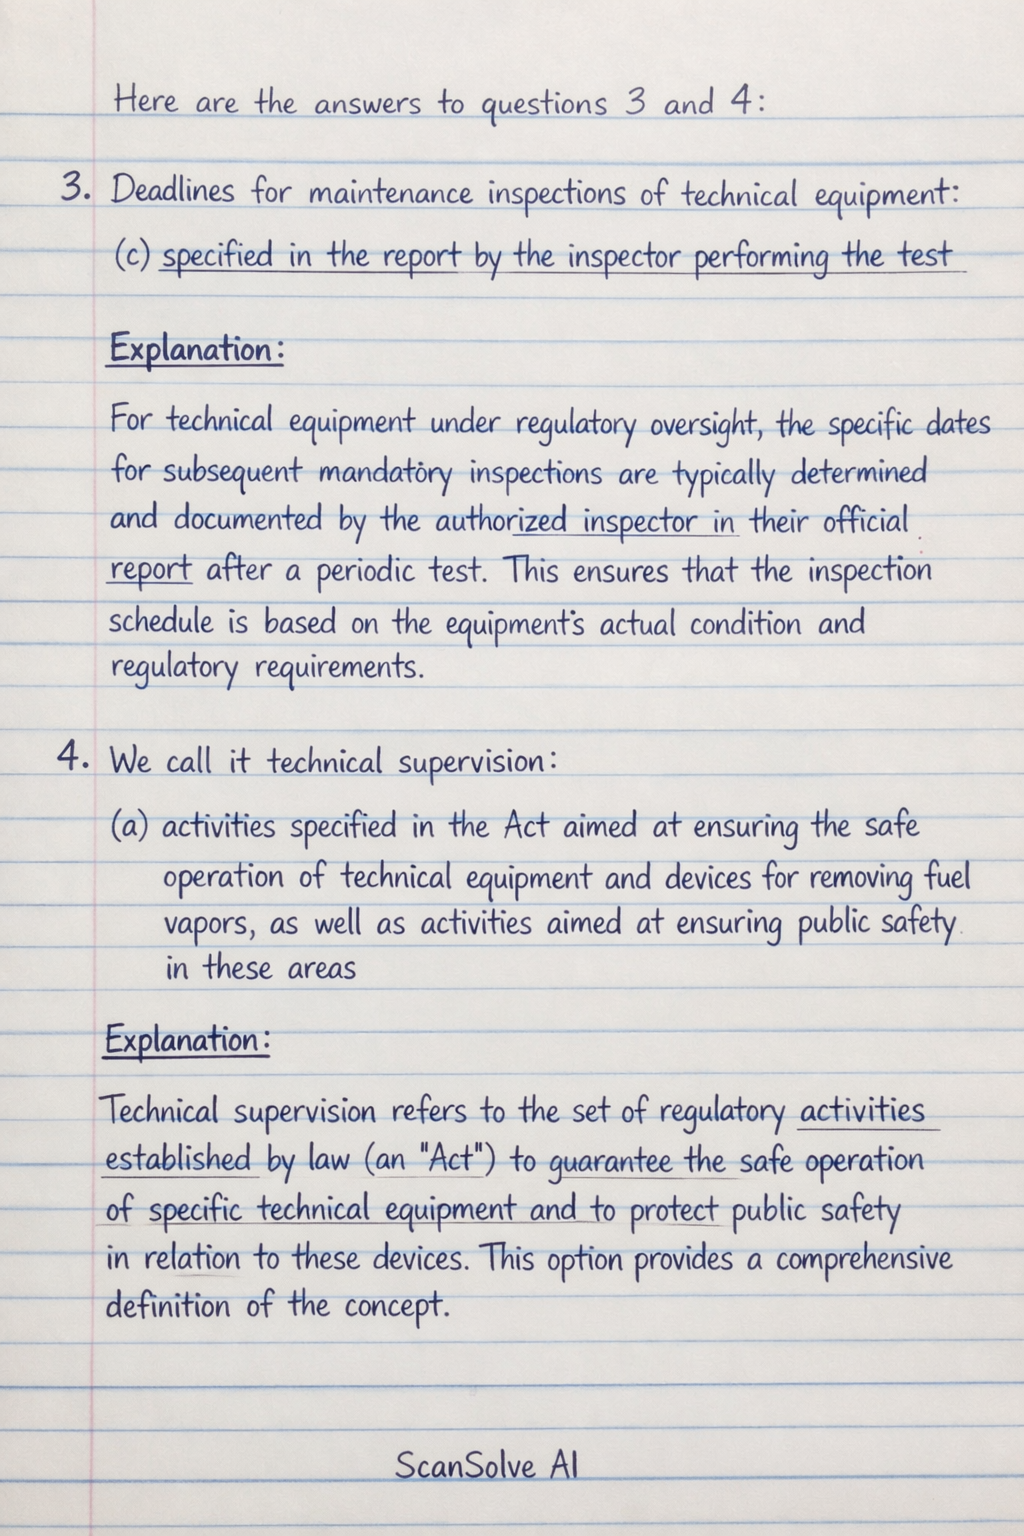 Here are the answers to questions 3 and 4:
3. Deadlines for maintenance inspections of technical equipment:
(c) specified in the report by the inspector performing the test
Explanation:
For technical equipment under regulatory oversight, the specific dates
for subsequent mandatory inspections are typically determined
and documented by the authorized inspector in their official
report after a periodic test. This ensures that the inspection
schedule is based on the equipment's actual condition and
regulatory requirements.
4. We call it technical supervision:
(a) activities specified in the Act aimed at ensuring the safe
operation of technical equipment and devices for removing fuel
vapors, as well as activities aimed at ensuring public safety
in these areas
Explanation:
Technical supervision refers to the set of regulatory activities
established by law (an "Act") to guarantee the safe operation
of specific technical equipment and to protect public safety
in relation to these devices. This option provides a comprehensive
definition of the concept.
ScanSolve AI